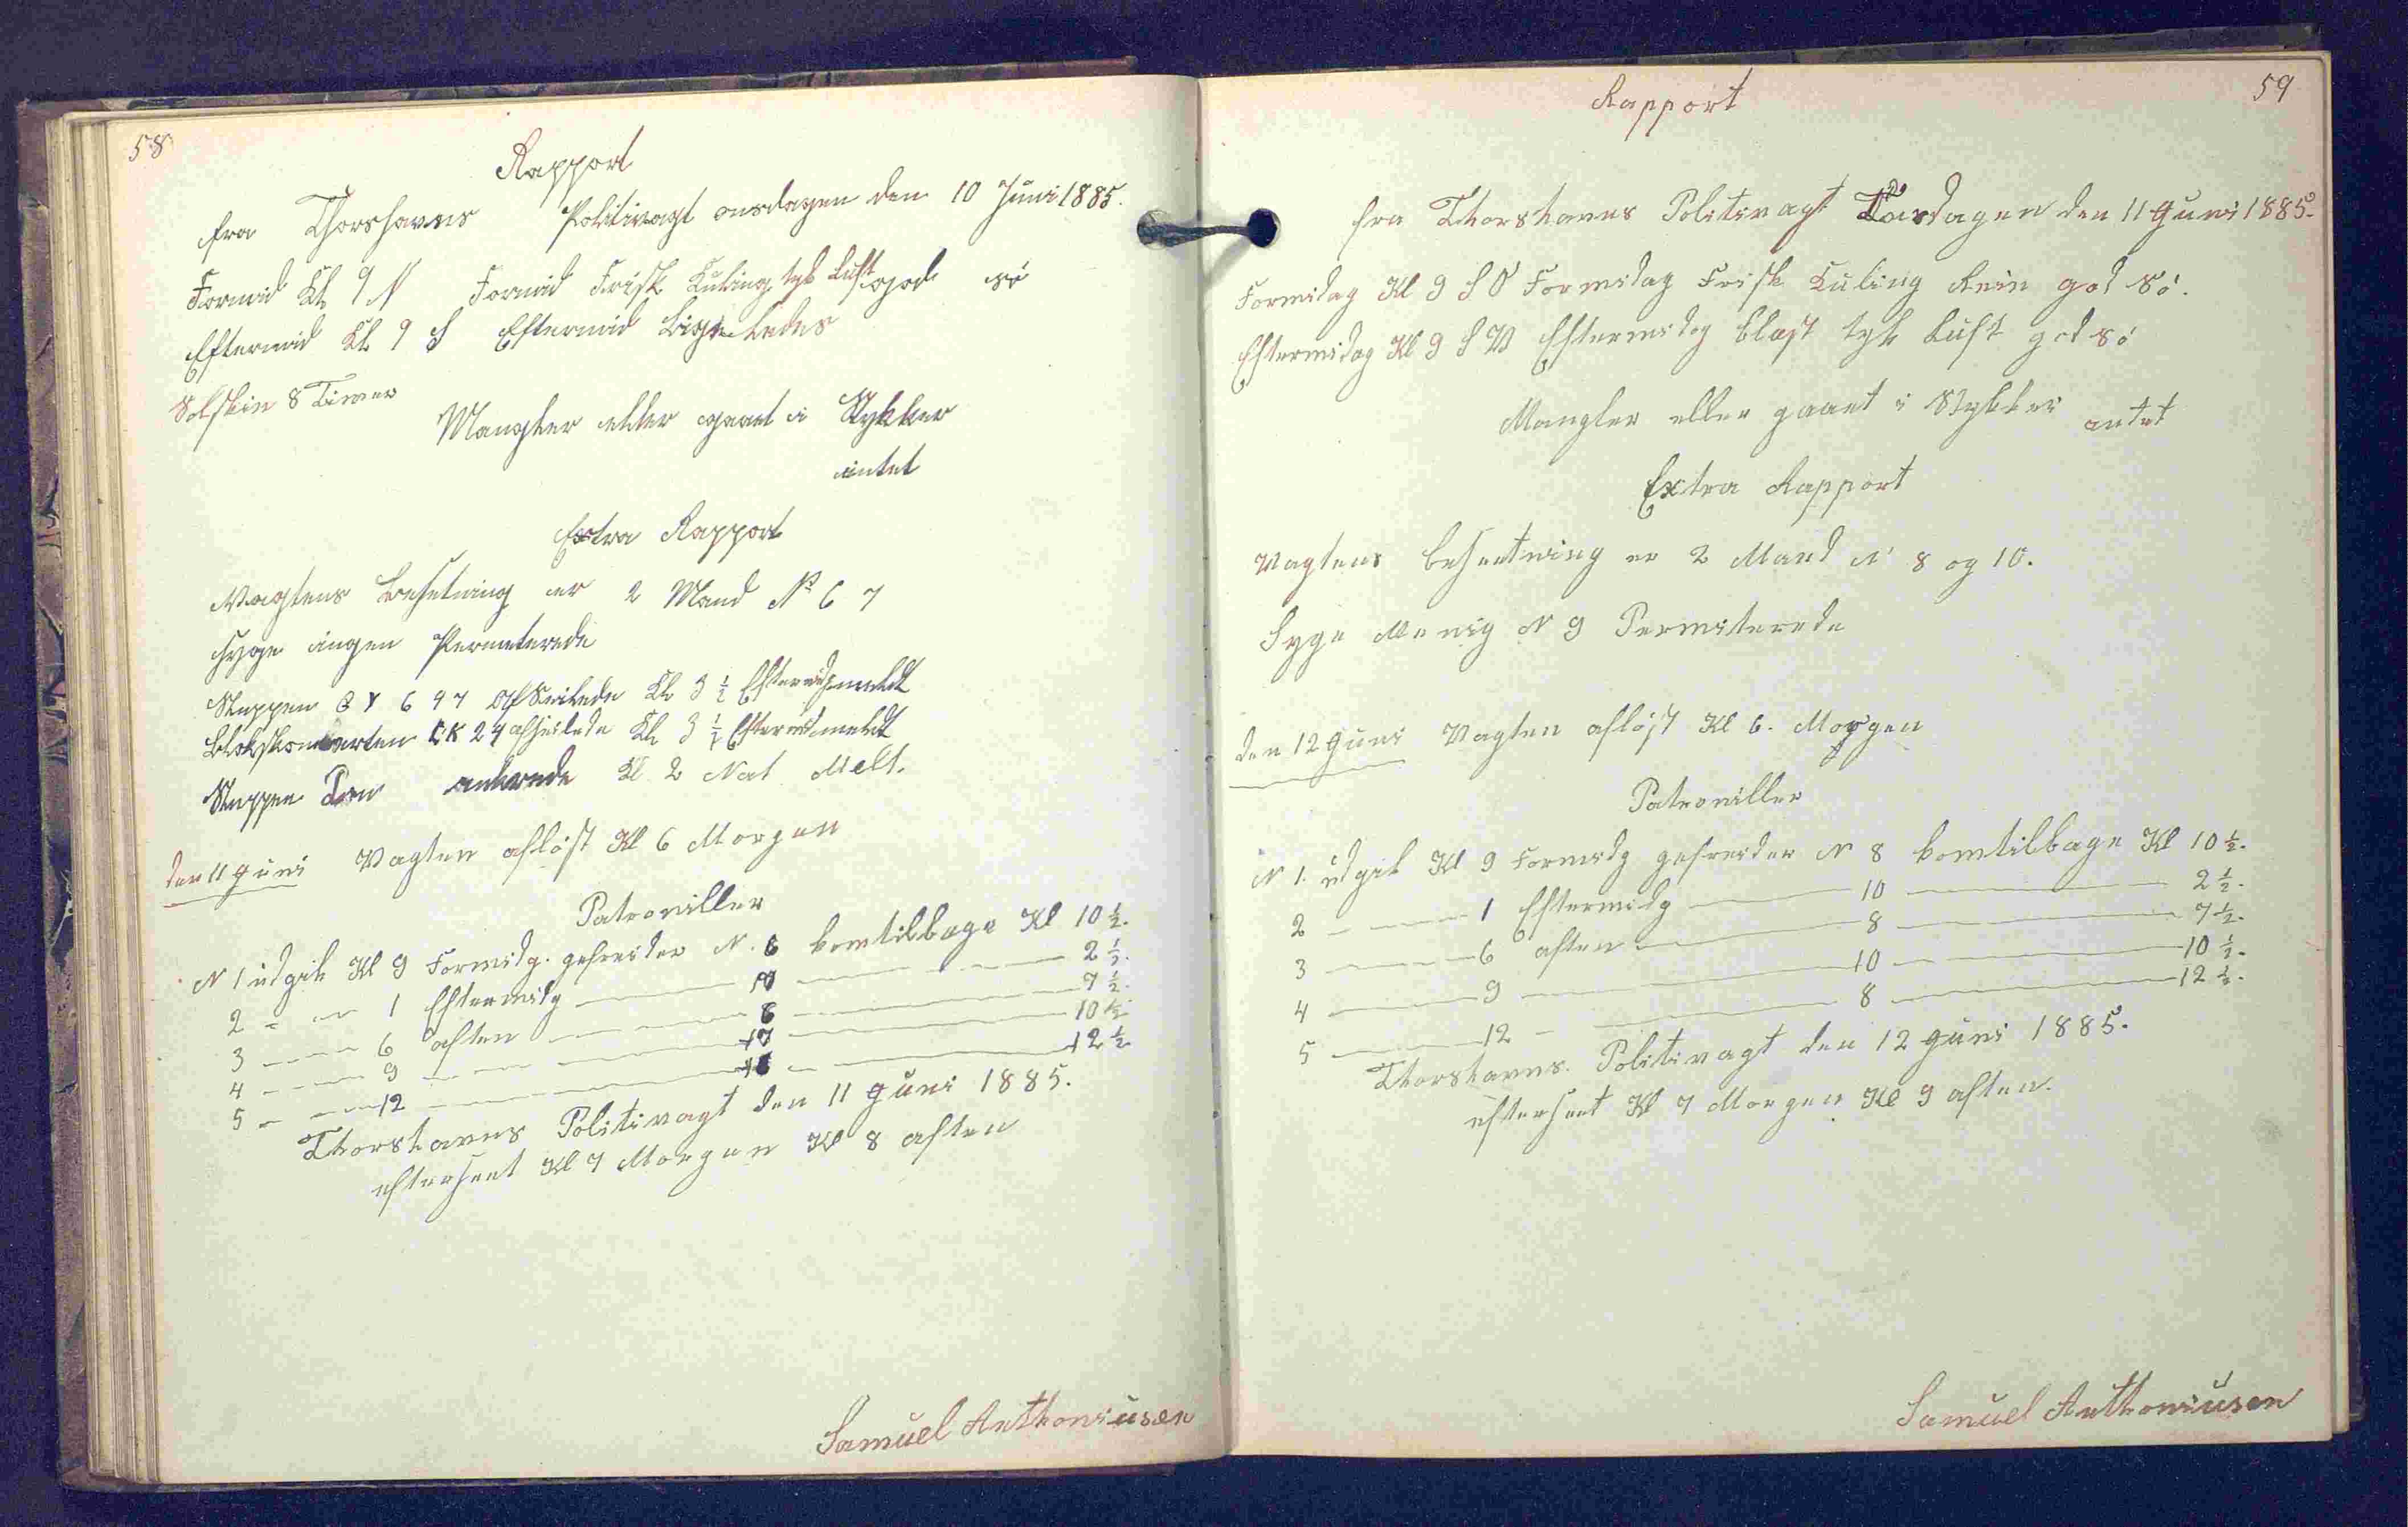 58
Rapport
fra Thorshavns Politivagt onsdagen den 10 Juni 1885.
Formid Kl 9 N Formid Frisk Kuling tyk Luft god sö
Eftermid Kl 9 S Eftermid Ligeledes
Solskin 8 Timer
Mangler eller gaaet i Stykker
intet
Extra Rapport
Vagtens besetning er 2 Mand No 6 7
Syge ingen Permeterede
Sluppen 647 Afseilede Kl 3 1/2 Eftermid meldt
24 afseilede Kl 3 1/2 Eftermid meldt
Sluppen ankrede Kl 2 Nat Melt.
den 11 Juni Vagten aflöst Kl 6 Morgen
Patroniller
N 1 udgik Kl 9 Formidg. gefreider N. 6 komtilbage Kl 10 1/2.
2 - - 1 Eftermidg - 7 - 2 1/2.
3 - - 6 aften - 6 - 7 1/2.
4 - - 9 - 7 - 10 1/2
5 - - 12 - 6 - 12 1/2
Thorshavns Politivagt den 11 Juni 1885.
efterseet Kl 7 Morgen Kl 8 aften
Samuel Anthoniusen
59
Rapport
fra Thorshavns Politivagt Torsdagen den 11 Juni 1885.
Formidag Kl 9 S O Formidag Frisk Kuling Rein god Sö.
Eftermidag Kl 9 S V Eftermidag blæst tyk Luft god sö
Mangler eller gaaet i Stykker
intet
Extra Rapport
Vagtens besaetning er 2 Mand N 8 og 10.
Syge Menig N 9 Permiterede
den 12 Juni Vagten aflöst Kl 6. Morgen
Patroniller
N 1. udgik Kl 9 Formidg gefreider N 8 komtilbage Kl 10 1/2.
2 - - 1 Eftermidg - 10 - 2 1/2.
3 - - 6 aften - 8 - 7 1/2.
4 - - 9 - 10 - 10 1/2.
5 - - 12 - 8 - 12 1/2.
Thorshavns. Politivagt den 12 Juni 1885.
efterseet Kl 7 Morgen Kl 9 aften.
Samuel Anthoniusen